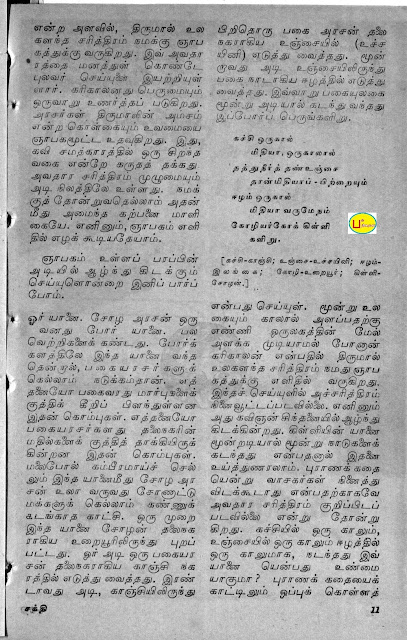 என்ற அளவில், திருமால் உல
களந்த சரித்திரம் நமக்கு ஞாப
கத்துக்கு வருகிறது. இவ் அவதா
ரத்தை மனத்துள் கொண்டே
புலவர் செய்யுளை இயற்றியுள்
ளார். கரிகாலனது பெருமையும்
ஒருவாறு உணர்த்தப் படுகிறது.
அரசர்கள் திருமாலின் அம்சம்
என்ற கொள்கையும் உவமையை
ஞாபகமூட்ட உதவுகிறது. இது,
கவி சமற்காரத்தில் ஒரு சிறந்த
வகை என்றே கருதத் தக்கது.
அவதார சரித்திரம் முழுமையும்
அடி நிலத்திலே உள்ளது. நமக்
குத் தோன்றுவதெல்லாம் அதன்
மீது அமைந்த கற்பனை மாளி
கையே. எனினும், ஞாபகம் எளி
தில் எழக் கூடியதேயாம்.
ஞாபகம் உள்ளப் பாப்பின்
அடியில் ஆழ்ந்து கிடக்கும்
செய்யுளொன்றை இனிப் பார்ப்
போம்.
ஓர் யானை. சோழ அரசன் ஒரு
வனது போர் யானை. பல
வெற்றிகளைக் கண்டது. போர்க்
களத்திலே இந்த யானை வந்த
தென்றால், பகையரசர்களுக்
கெல்லாம் நடுக்கம்தான். எத்
தனையோ பகைவரது மார்புகளைக்
குத்திக் கீறிப் பிளந்துள்ளன
இதன் கொம்புகள். எத்தனையோ
பகையரசர்களது தலைநகரின்
மதில்களைக் குத்தித் தாக்கியிருக்
கின்றன இதன் கொம்புகள்.
மலைபோல் கம்பீரமாய்ச் செல்
லும் இந்த யானைமீது சோழ அர
சன் உலா வருவது சோணாட்டு
மக்களுக் கெல்லாம் கண்ணுக்
கடங்காத காட்சி. ஒரு முறை
இந்த யானை சோழன் தலைநக
ராகிய உறையூரிலிருந்து புறப்
பட்டது. ஓர் அடி ஒரு பகையர
சன் தலைநகராகிய காஞ்சி நக
ரத்தில் எடுத்து வைத்தது. இரண்
டாவது அடி, காஞ்சியிலிருந்து
பிறிதொரு பகை அரசன் தலை
நகராகிய உஞ்சையில் (உச்ச
யினி) எடுத்து வைத்தது. மூன்
றாவது அடி உஞ்சையிலிருந்து
பகை நாடாகிய ஈழத்தில் எடுத்து
வைத்தது. இவ்வாறு பகையுலகை
மூன்று அடியால் கடந்து வந்தது
இப்போர்ப் பெருங்களிறு.
கச்சி ஒருகால்
மிதியா, ஒருகாலால்
தத்துநீர்த் தண்உஞ்சை
தான்மிதியாப் - பிற்றையும்
ஈழம் ஒருகால்
மிதியா வருமேநம்
கோழியர்கோக் கிள்ளி
களிறு.
[கச்சி-காஞ்சி; உஞ்சை-உச்சயினி; ஈழம்-
இலங்கை; கோழி-உறையூர்; கிள்ளி-
சோழன்.]
என்பது செய்யுள். மூன்று உல
கையும் காலால் அளப்பதற்கு
எண்ணி ஒருலகத்தின் மேல்
அளக்க முடியாமல் போனான்
கரிகாலன் என்பதில் திருமால்
உலகளந்த சரித்திரம் நமது ஞாப
கத்துக்கு எளிதில் வருகிறது.
இந்தச் செய்யுளில் அச்சரித்திரம்
நினைவூட்டப்படவில்லை. எனினும்
அது கவிஞன் சிந்தனையில் ஆழ்ந்து
கிடக்கின்றது. கிள்ளியின் யானை
மூன்றடியால் மூன்று நாடுகளைக்
கடந்தது என்பதனால் இதனை
உய்த்துணரலாம். புராணக் கதை
யென்று வாசகர்கள் நினைத்து
விடக்கூடாது என்பதற்காகவே
அவதார சரித்திரம் குறிப்பிடப்
படவில்லை என்று தோன்று
கிறது. கச்சியில் ஒரு காலும்,
உஞ்சையில் ஒரு காலும் ஈழத்தில்
ஒரு காலுமாக, நடந்தது இவ்
யானை யென்பது உண்மை
யாகுமா? புராணக் கதையைக்
காட்டிலும் ஒப்புக் கொள்ளத்
சக்தி
11